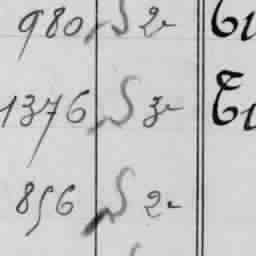 980 S 2
1376 S 3
856 S 2